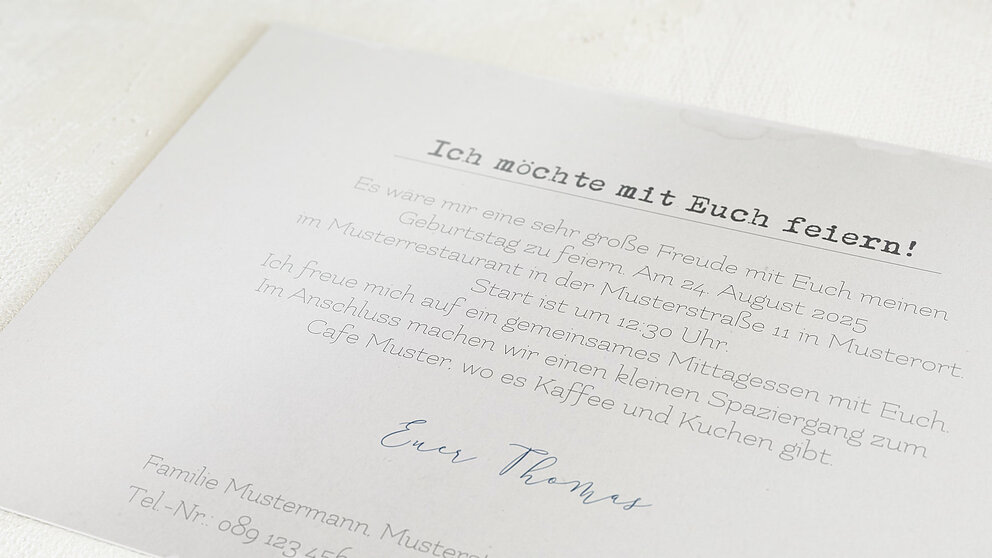 Ich möchte mit Euch feiern!
Es wäre mir eine sehr große Freude mit Euch meinen
Geburtstag zu feiern. Am 24. August 2025
im Musterrestaurant in der Musterstraße 11 in Musterort.
Start ist um 12:30 Uhr.
Ich freue mich auf ein gemeinsames Mittagessen mit Euch.
Im Anschluss machen wir einen kleinen Spaziergang zum
Cafe Muster, wo es Kaffee und Kuchen gibt.
Euer Thomas
Familie Mustermann,
Tel.-Nr.: 089 123 456